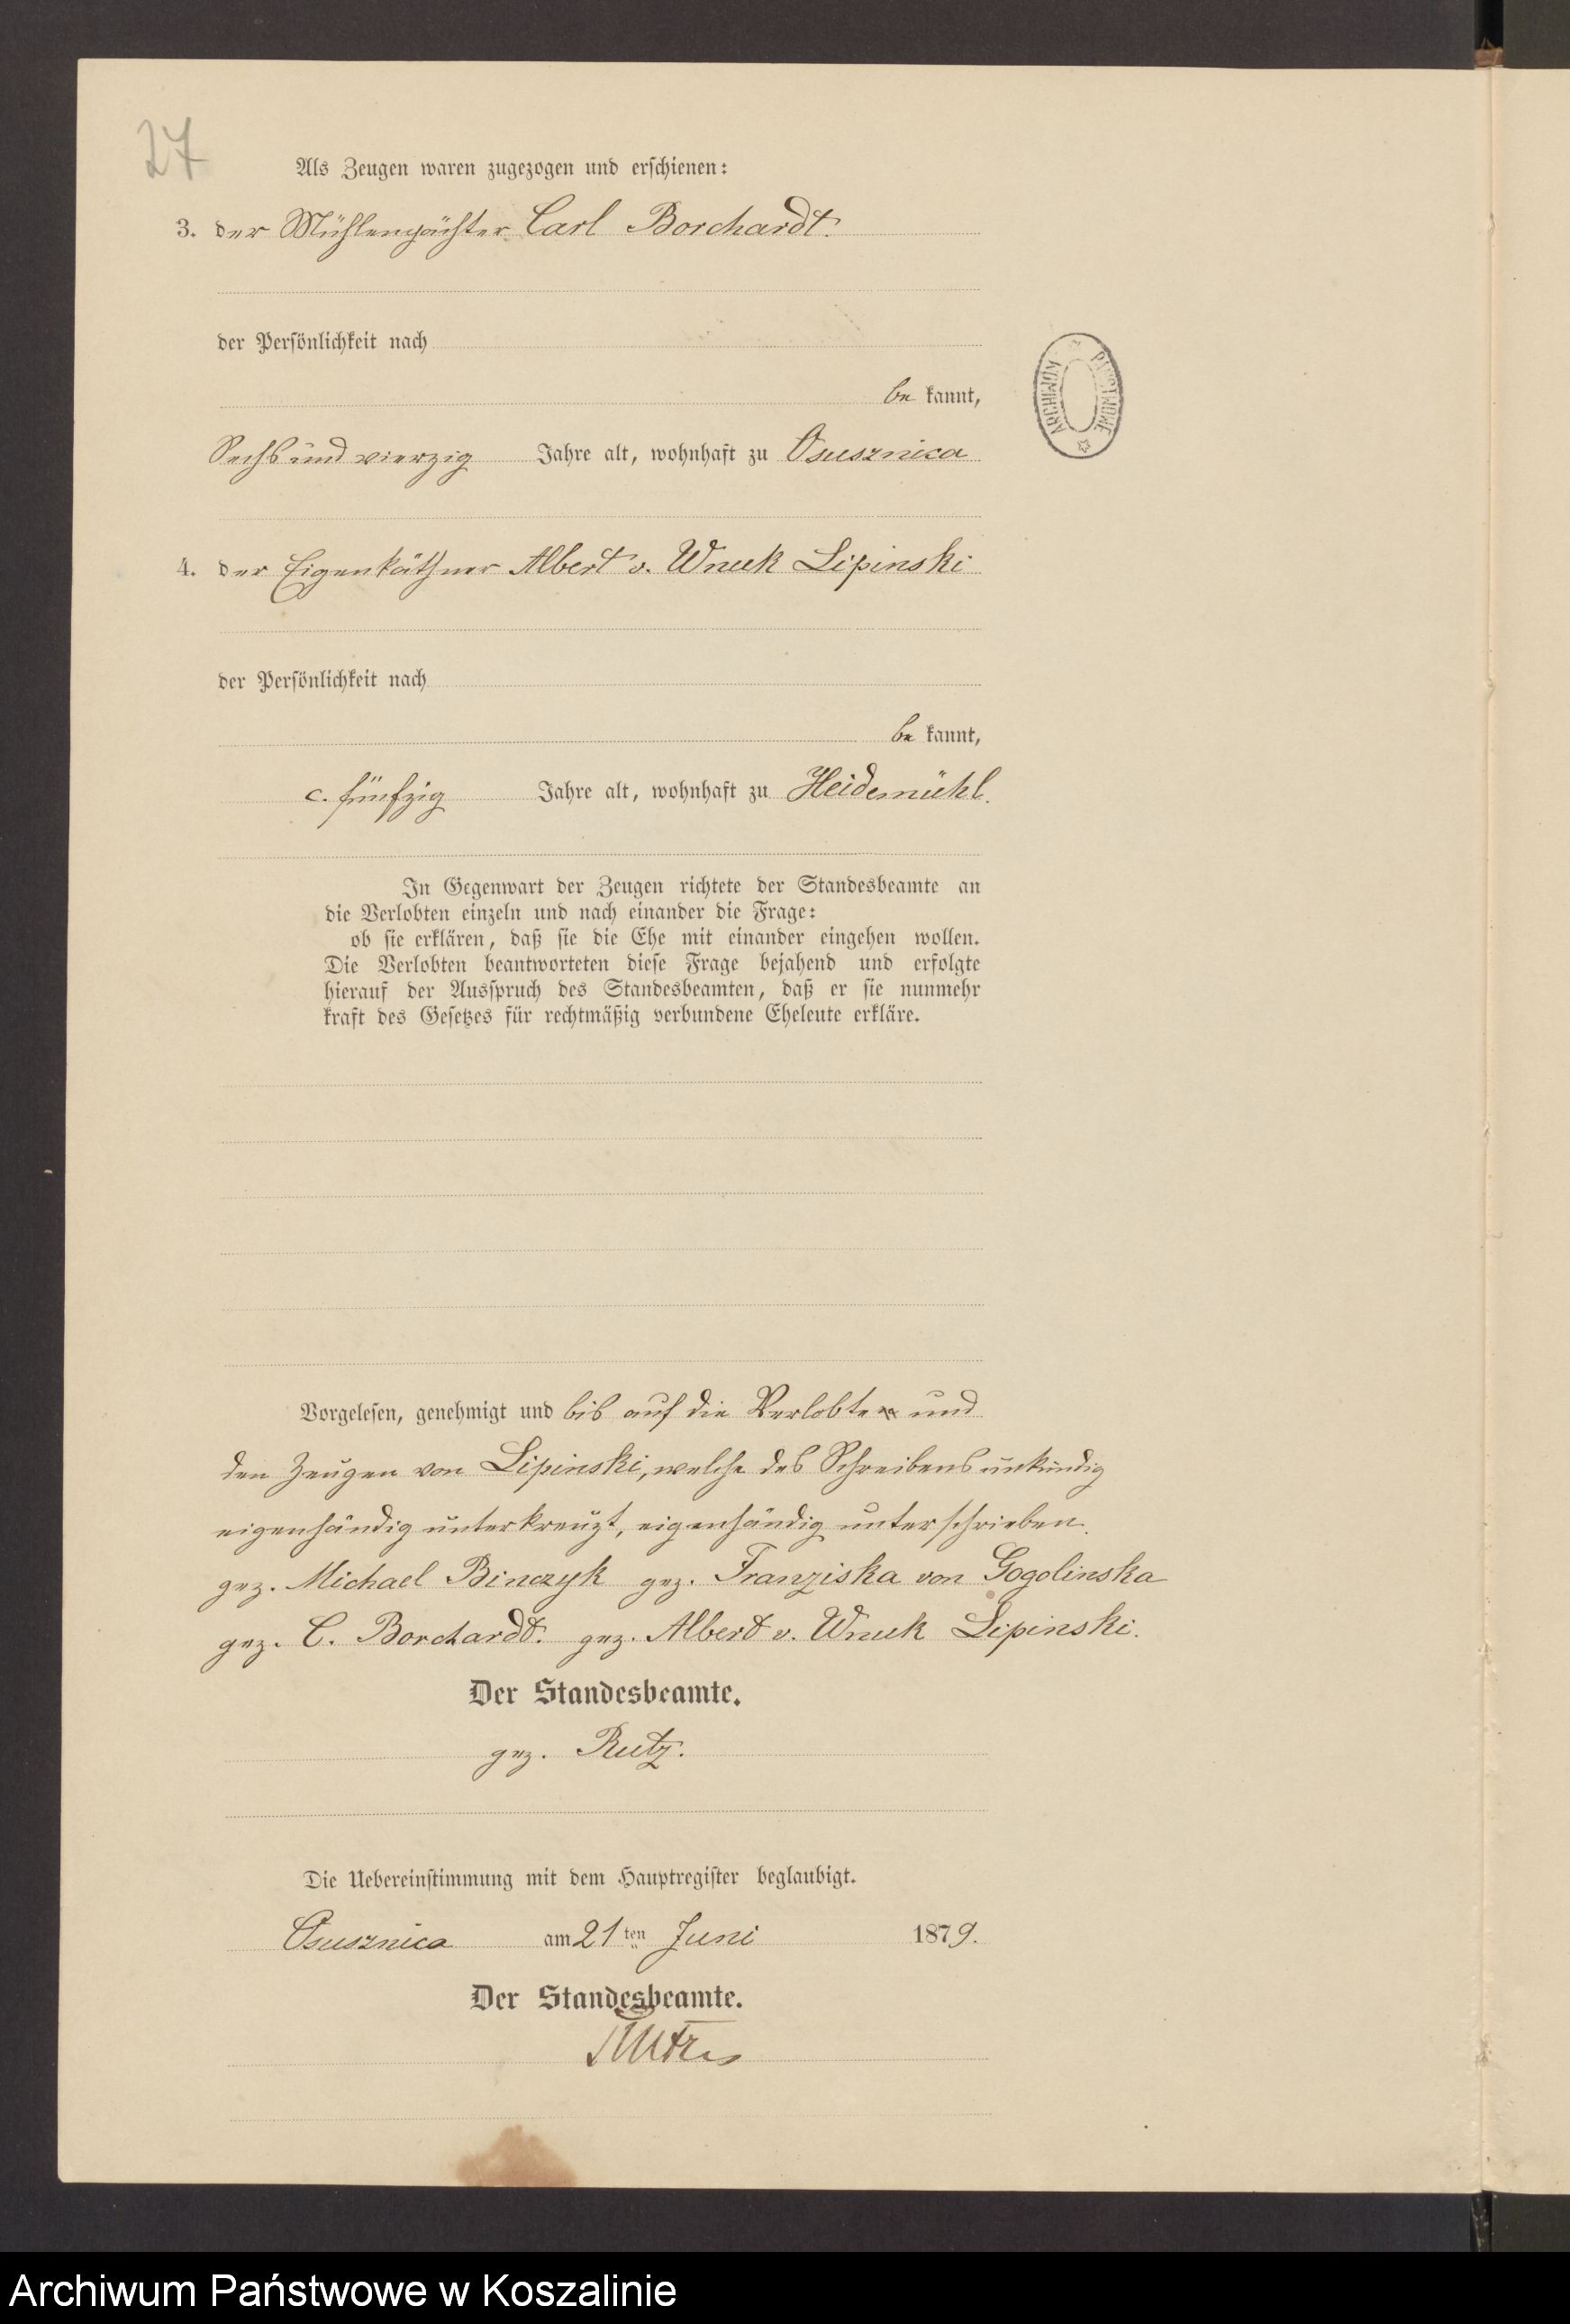 27
Als Zeugen waren zugezogen und erschienen:
3. der Mühlenpächter Carl Borchardt.
der Persönlichkeit nach
be kannt,
Sechs und vierzig Jahre alt, wohnhaft zu Osusznica
4. der Eigenkäthner Albert v. Wnuk Lipinski
der Persönlichkeit nach
be kannt,
c. fünfzig Jahre alt, wohnhaft zu Heidemühl.
In Gegenwart der Zeugen richtete der Standesbeamte an
die Verlobten einzeln und nach einander die Frage:
ob sie erklären, daß sie die Ehe mit einander eingehen wollen.
Die Verlobten beantworteten diese Frage bejahend und erfolgte
hierauf der Ausspruch des Standesbeamten, daß er sie nunmehr
kraft des Gesetzes für rechtmäßig verbundene Eheleute erkläre.
Vorgelesen, genehmigt und bis auf die Verlobte und
den Zeugen von Lipinski, welche des Schreibens unkundig
eigenhändig unterkreuzt, eigenhändig unterschrieben.
gez. Michael Binczyk gez. Franziska von Gogolinska
gez. C. Borchardt. gez. Albert v. Wnuk Lipinski.
Der Standesbeamte.
gez. Rutz.
Die Uebereinstimmung mit dem Hauptregister beglaubigt.
Osusznica am 21ten Juni 1879.
Der Standesbeamte.
Rutz
ARCHIWUM PAŃSTWOWE
Archiwum Państwowe w Koszalinie